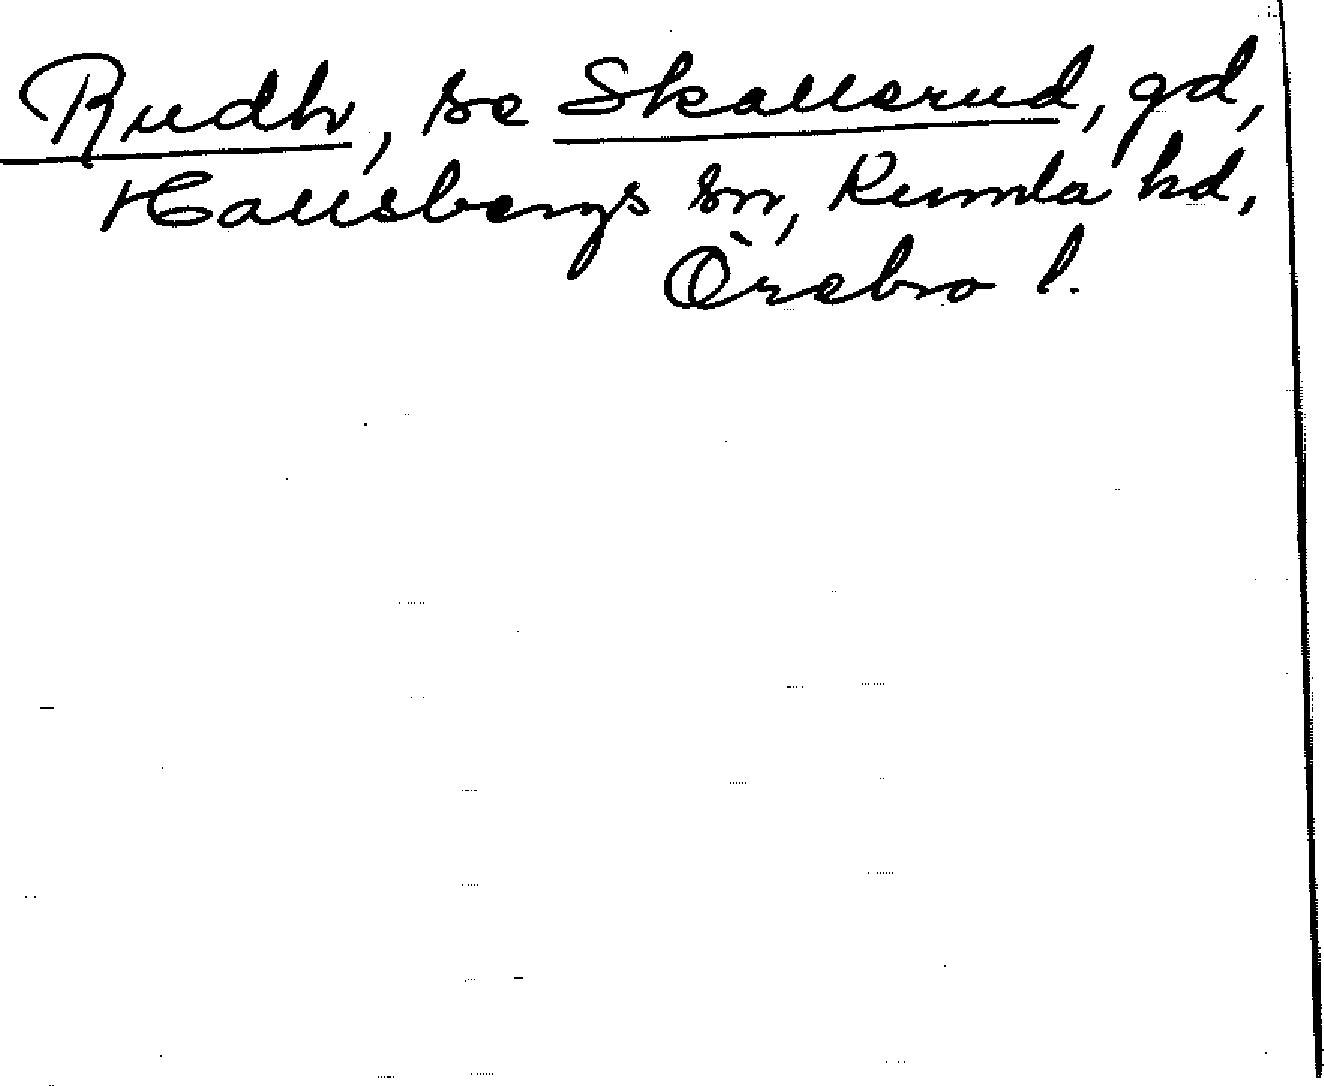 Rudh, se Skallerud, gd,
Hallsbergs sn, Kumla hd,
Örebro l.